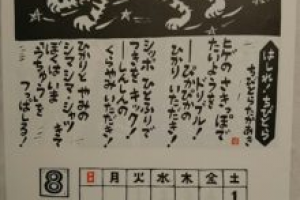 はしれ！ちびとら！
ちびとらがあき
ヒゲの さきっぽで
たいようを
ドリブル！
―ぴかぴかの
ひかり いただき！
シッポ ひとふりで
つきを キック！
―しんしんの
くらやみ いただき！
ひかりと やみの
シマ・シマ・シャツ きて
ぼくは いま
うちゅうを
つっぱしる！
8
日 月 火 水 木 金 土
1